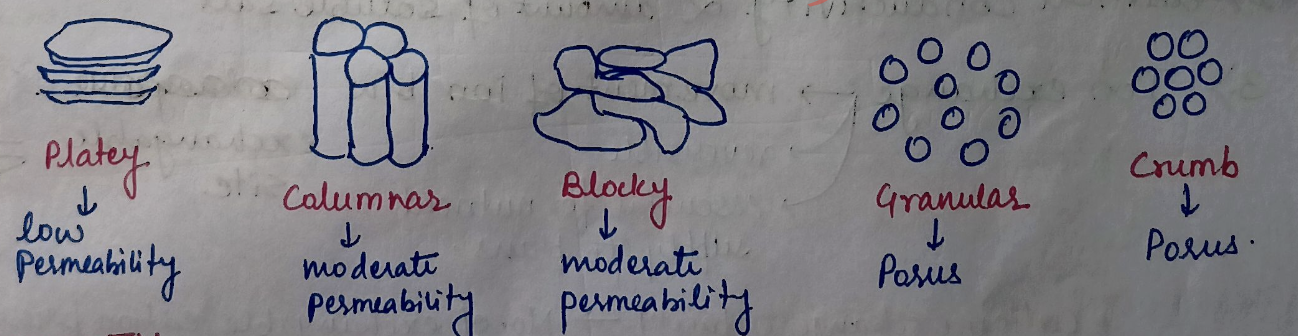 Platey
↓
low
Permeability
Columnar
↓
moderate
permeability
Blocky
↓
moderate
permeability
Granular
↓
Porus
Crumb
↓
Porus.